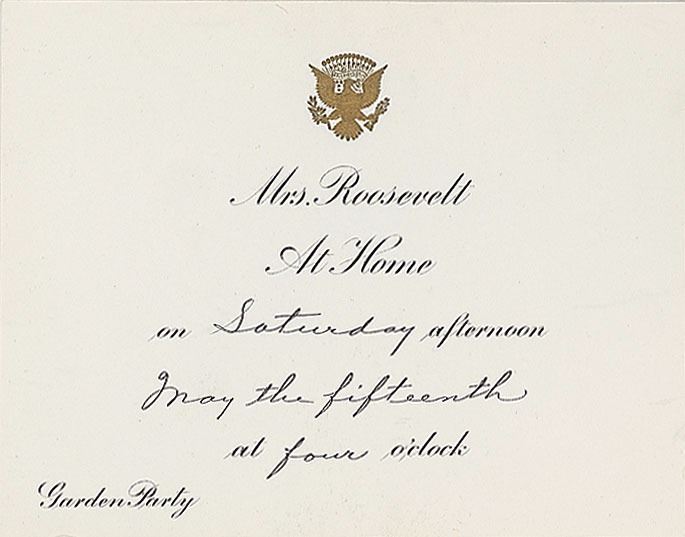 Mrs. Roosevelt
At Home
on Saturday afternoon
May the fifteenth
at four o'clock
Garden Party